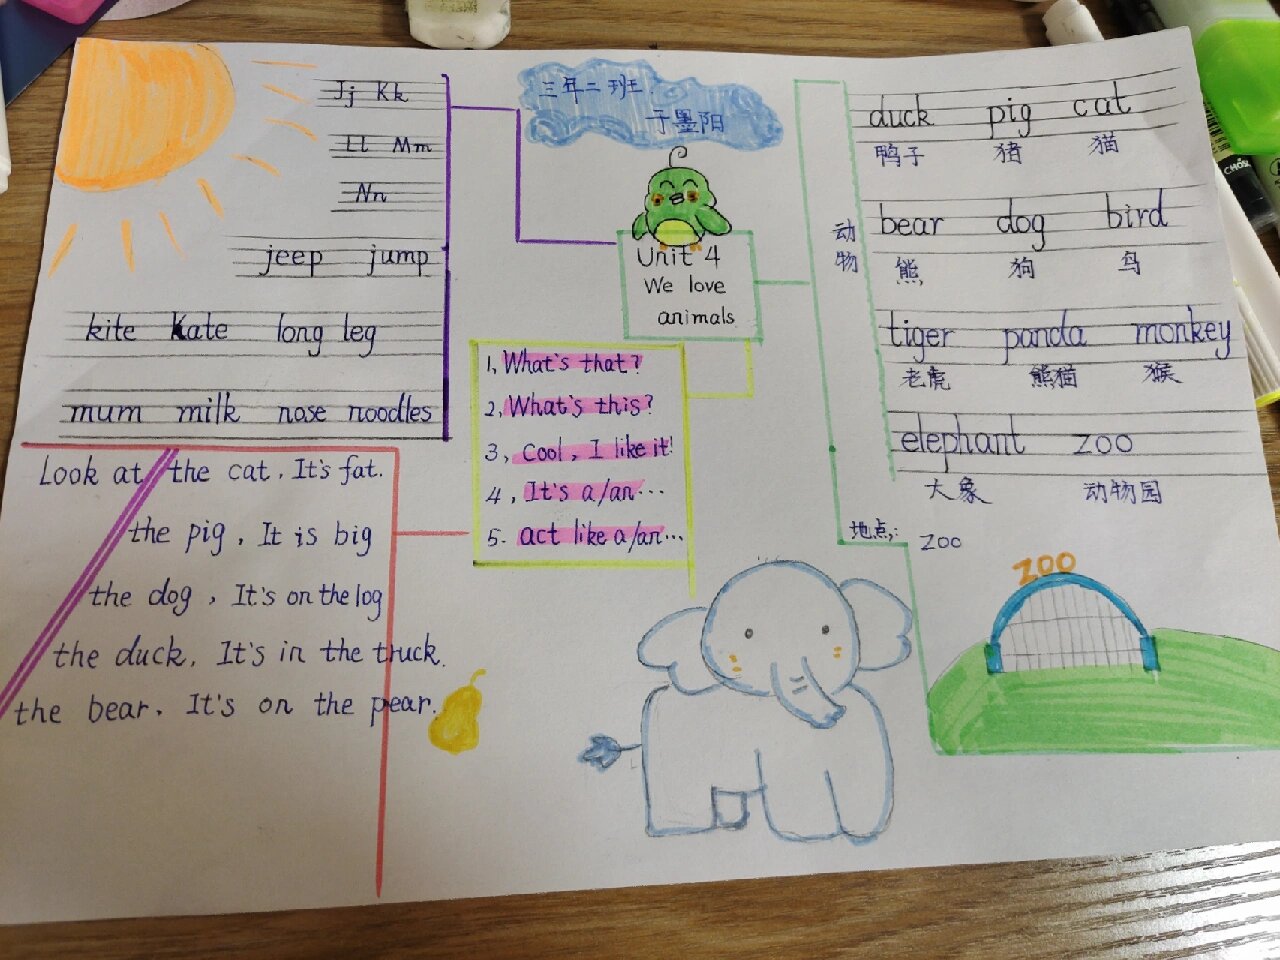 三年二班
于墨阳
Jj Kk
Ll Mm
Nn
jeep jump
kite Kate long leg
mum milk nose noodles
Unit 4
We love
animals
1, What's that?
2, What's this?
3, Cool, I like it!
4, It's a/an...
5. act like a/an...
Look at the cat, It's fat.
the pig, It is big
the dog, It's on the log
the duck, It's in the truck.
the bear, It's on the pear.
动物
duck pig cat
鸭子 猪 猫
bear dog bird
熊 狗 鸟
tiger panda monkey
老虎 熊猫 猴
elephant zoo
大象 动物园
地点: zoo
ZOO